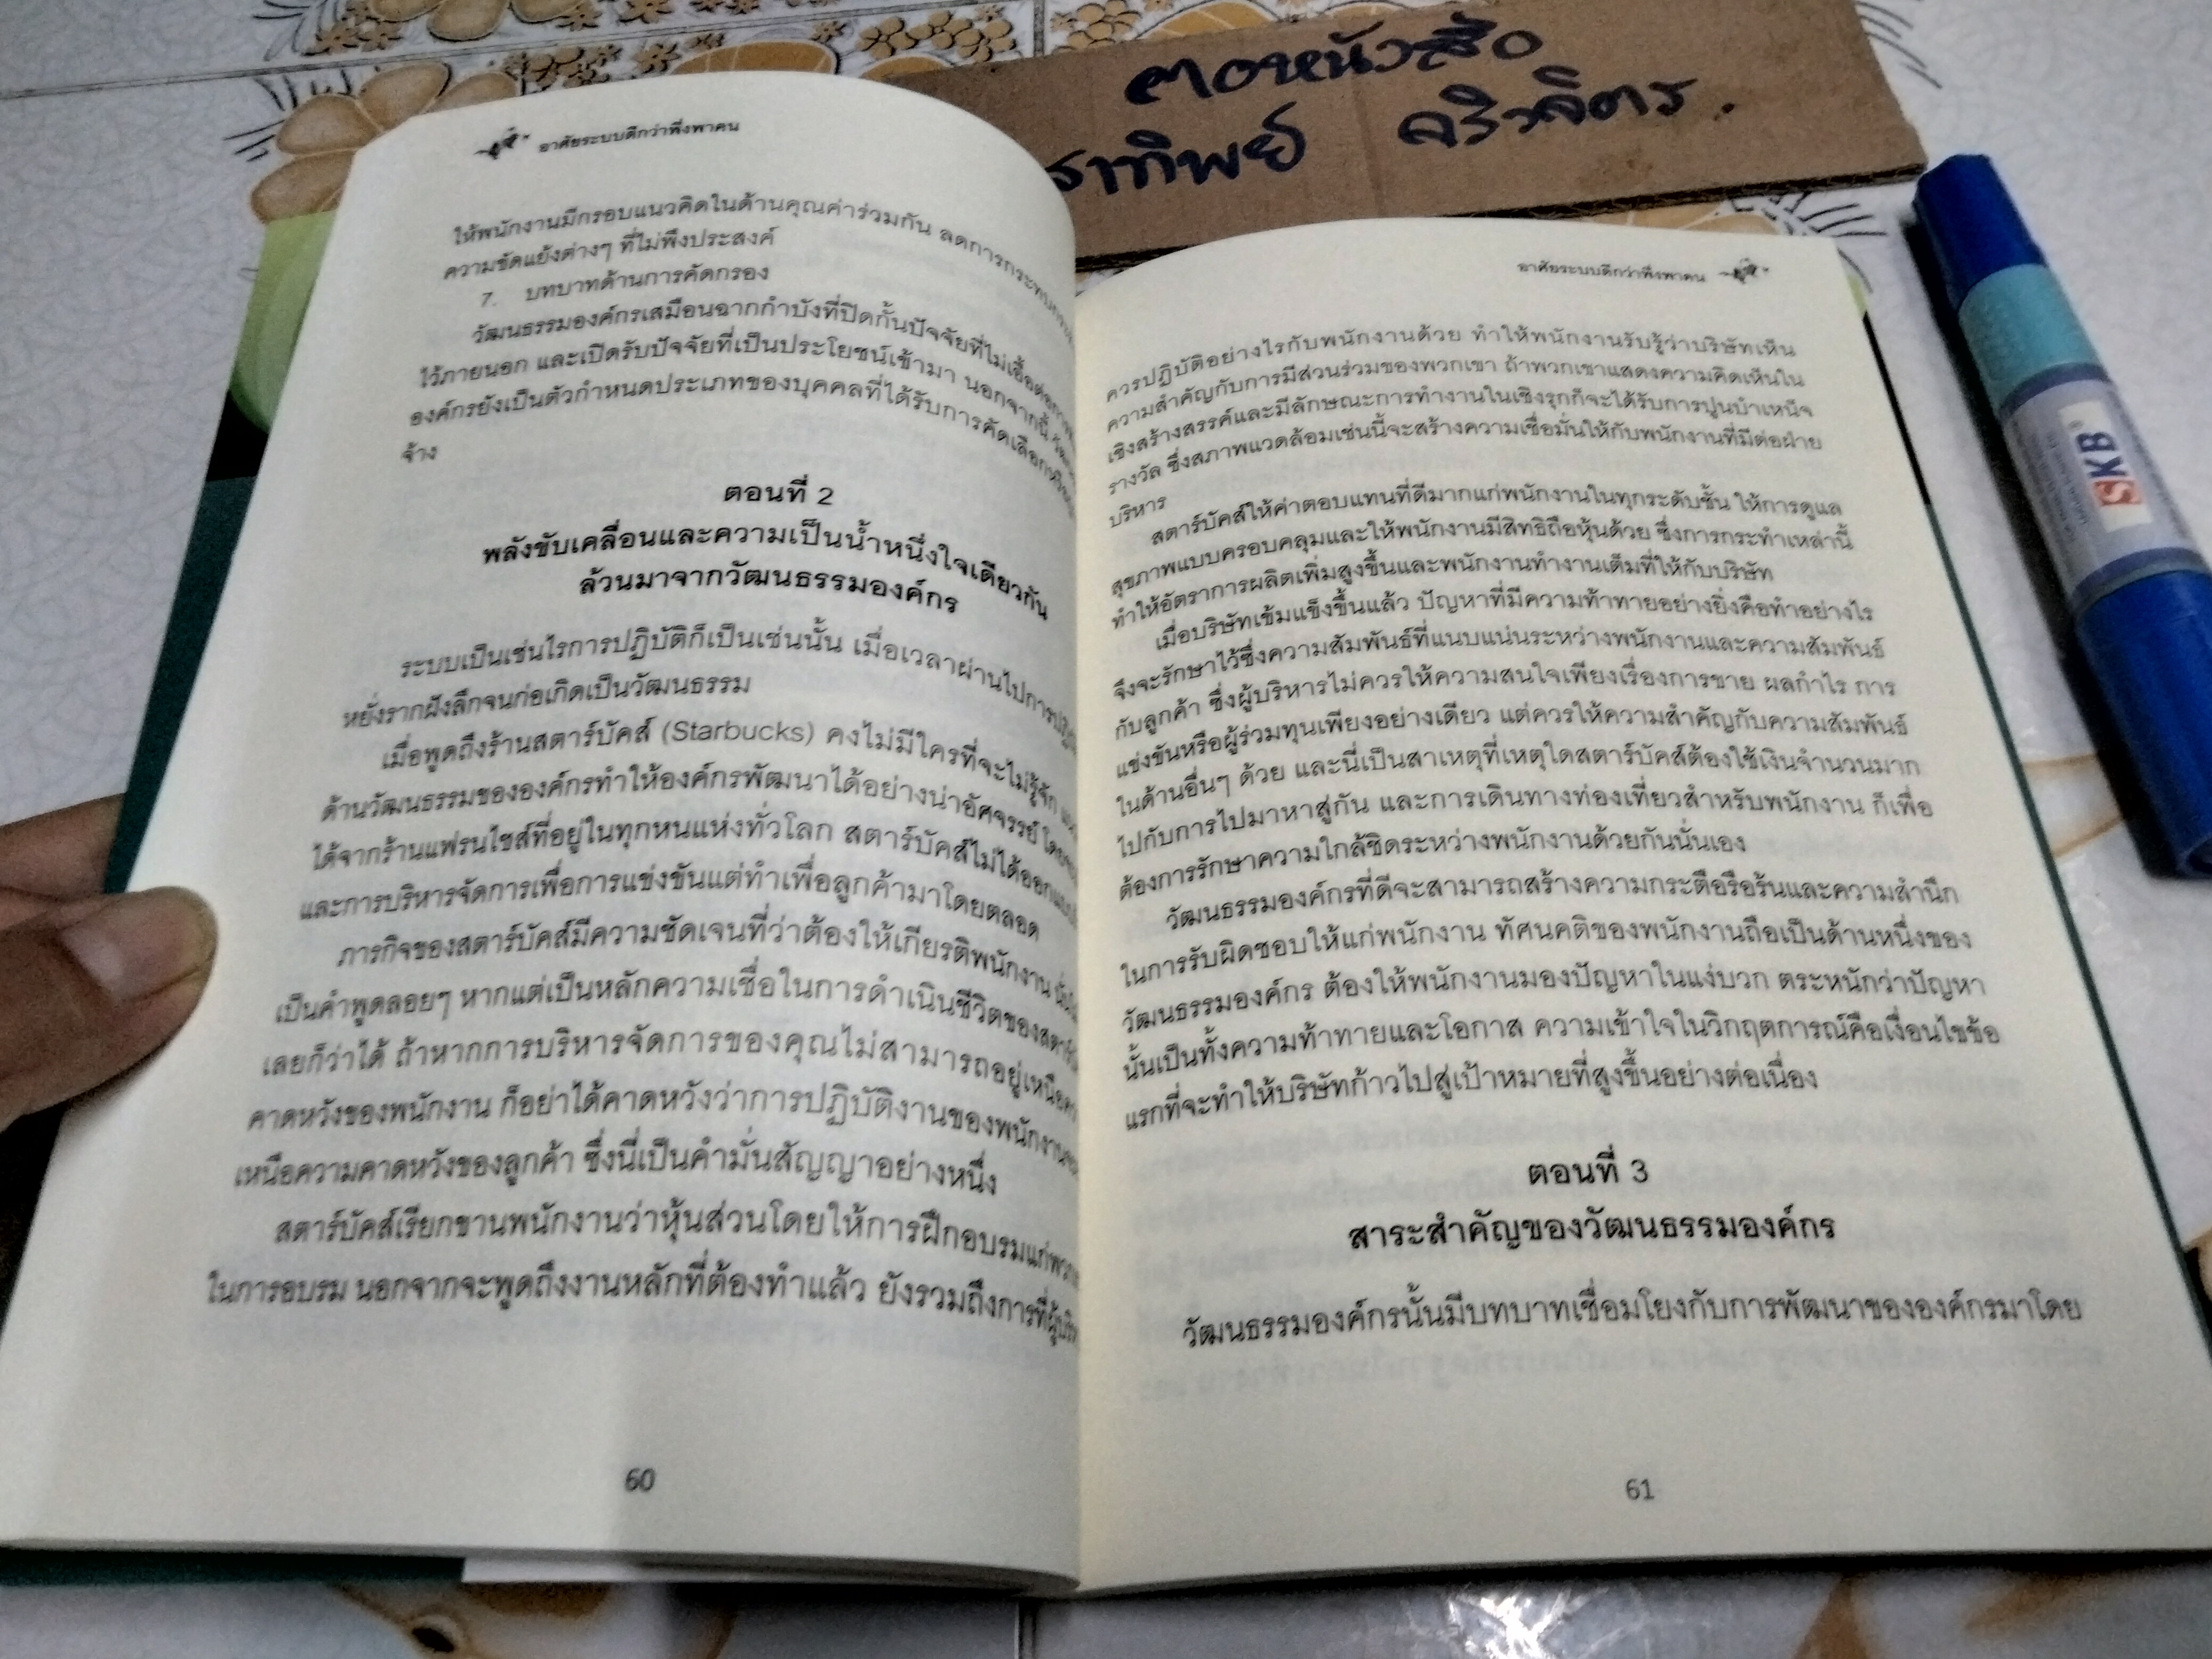 ตอหนังสือ
สาทิพย์ ศริวจิตร.
SKB
อาศัยระบบดีกว่าพึ่งพาคน
ให้พนักงานมีกรอบแนวคิดในด้านคุณค่าร่วมกัน ลดการกระทบ
ความขัดแย้งต่างๆ ที่ไม่พึงประสงค์
7. บทบาทด้านการคัดกรอง
วัฒนธรรมองค์กรเสมือนฉากกำบังที่ปิดกั้นปัจจัยที่ไม่เอื้อต่อ
ไว้ภายนอก และเปิดรับปัจจัยที่เป็นประโยชน์เข้ามา นอกจากนี้
องค์กรยังเป็นตัวกำหนดประเภทของบุคคลที่ได้รับการคัดเลือก
จ้าง
ตอนที่ 2
พลังขับเคลื่อนและความเป็นน้ำหนึ่งใจเดียวกัน
ล้วนมาจากวัฒนธรรมองค์กร
ระบบเป็นเช่นไรการปฏิบัติก็เป็นเช่นนั้น เมื่อเวลาผ่านไปการ
หยั่งรากฝังลึกจนก่อเกิดเป็นวัฒนธรรม
เมื่อพูดถึงร้านสตาร์บัคส์ (Starbucks) คงไม่มีใครที่จะไม่รู้จัก
ด้านวัฒนธรรมขององค์กรทำให้องค์กรพัฒนาได้อย่างน่าอัศจรรย์
ได้จากร้านแฟรนไชส์ที่อยู่ในทุกหนแห่งทั่วโลก สตาร์บัคส์ไม่ได้
และการบริหารจัดการเพื่อการแข่งขันแต่ทำเพื่อลูกค้ามาโดยตลอด
ภารกิจของสตาร์บัคส์มีความชัดเจนที่ว่าต้องให้เกียรติพนักงาน
เป็นคำพูดลอยๆ หากแต่เป็นหลักความเชื่อในการดำเนินชีวิตของ
เลยก็ว่าได้ ถ้าหากการบริหารจัดการของคุณไม่สามารถอยู่เหนือ
คาดหวังของพนักงาน ก็อย่าได้คาดหวังว่าการปฏิบัติงานของพนักงาน
เหนือความคาดหวังของลูกค้า ซึ่งนี่เป็นคำมั่นสัญญาอย่างหนึ่ง
สตาร์บัคส์เรียกขานพนักงานว่าหุ้นส่วนโดยให้การฝึกอบรมแก่
ในการอบรม นอกจากจะพูดถึงงานหลักที่ต้องทำแล้ว ยังรวมถึงการที่
60
อาศัยระบบดีกว่าพึ่งพาคน
ควรปฏิบัติอย่างไรกับพนักงานด้วย ทำให้พนักงานรับรู้ว่าบริษัทเห็น
ความสำคัญกับการมีส่วนร่วมของพวกเขา ถ้าพวกเขาแสดงความคิดเห็นใน
เชิงสร้างสรรค์และมีลักษณะการทำงานในเชิงรุกก็จะได้รับการปูนบำเหน็จ
รางวัล ซึ่งสภาพแวดล้อมเช่นนี้จะสร้างความเชื่อมั่นให้กับพนักงานที่มีต่อฝ่าย
บริหาร
สตาร์บัคส์ให้ค่าตอบแทนที่ดีมากแก่พนักงานในทุกระดับชั้น ให้การดูแล
สุขภาพแบบครอบคลุมและให้พนักงานมีสิทธิถือหุ้นด้วย ซึ่งการกระทำเหล่านี้
ทำให้อัตราการผลิตเพิ่มสูงขึ้นและพนักงานทำงานเต็มที่ให้กับบริษัท
เมื่อบริษัทเข้มแข็งขึ้นแล้ว ปัญหาที่มีความท้าทายอย่างยิ่งคือทำอย่างไร
จึงจะรักษาไว้ซึ่งความสัมพันธ์ที่แนบแน่นระหว่างพนักงานและความสัมพันธ์
กับลูกค้า ซึ่งผู้บริหารไม่ควรให้ความสนใจเพียงเรื่องการขาย ผลกำไร การ
แข่งขันหรือผู้ร่วมทุนเพียงอย่างเดียว แต่ควรให้ความสำคัญกับความสัมพันธ์
ในด้านอื่นๆ ด้วย และนี่เป็นสาเหตุที่เหตุใดสตาร์บัคส์ต้องใช้เงินจำนวนมาก
ไปกับการไปมาหาสู่กัน และการเดินทางท่องเที่ยวสำหรับพนักงาน ก็เพื่อ
ต้องการรักษาความใกล้ชิดระหว่างพนักงานด้วยกันนั่นเอง
วัฒนธรรมองค์กรที่ดีจะสามารถสร้างความกระตือรือร้นและความสำนึก
ในการรับผิดชอบให้แก่พนักงาน ทัศนคติของพนักงานถือเป็นด้านหนึ่งของ
วัฒนธรรมองค์กร ต้องให้พนักงานมองปัญหาในแง่บวก ตระหนักว่าปัญหา
นั้นเป็นทั้งความท้าทายและโอกาส ความเข้าใจในวิกฤตการณ์คือเงื่อนไขข้อ
แรกที่จะทำให้บริษัทก้าวไปสู่เป้าหมายที่สูงขึ้นอย่างต่อเนื่อง
ตอนที่ 3
สาระสำคัญของวัฒนธรรมองค์กร
วัฒนธรรมองค์กรนั้นมีบทบาทเชื่อมโยงกับการพัฒนาขององค์กรมาโดย
61